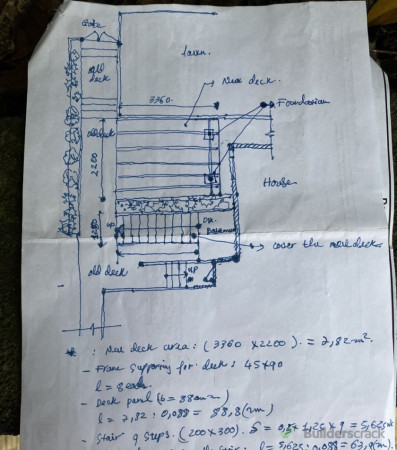 Gate
lawn.
old
deck
New deck.
3360.
Foundation
old deck
2200
House
up
DN.
Basement
cover the new deck
old deck
up
* : New deck area: (3360 x 2200). = 7,82 m².
- Frame supporting for deck: 45x90
l = 8 each.
- Deck panel (b = 88mm)
l = 7,82 : 0,088 = 88,8 (m)
- Stair 9 steps. (200x300). S = 0,5 x 1,25 x 9 = 5,625 m²
l = 5,625 : 0,088 = 63,9 (m).
Builderscrack